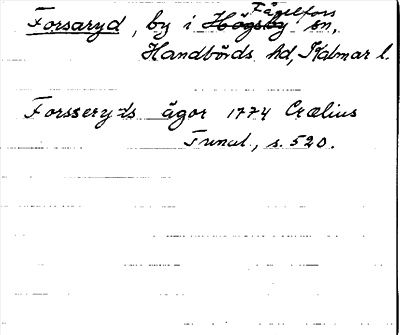 Forsaryd, by i Högsby Fågelfors sn,
Handbörds hd, Kalmar l.
Forsseryds ägor 1774 Crælius
Tunal., s. 520.